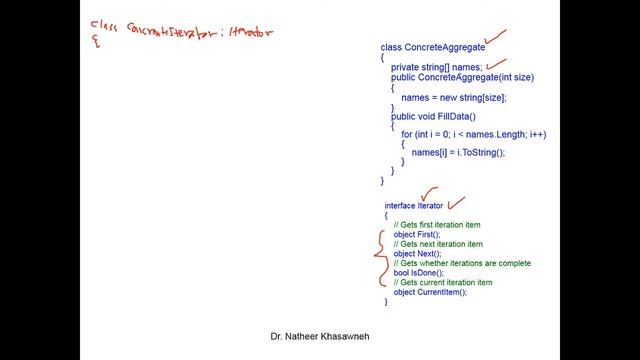 class ConcreteIterator : Iterator
{
class ConcreteAggregate
{
private string[] names;
public ConcreteAggregate(int size)
{
names = new string[size];
}
public void FillData()
{
for (int i = 0; i < names.Length; i++)
{
names[i] = i.ToString();
}
}
}
interface Iterator
{
// Gets first iteration item
object First();
// Gets next iteration item
object Next();
// Gets whether iterations are complete
bool IsDone();
// Gets current iteration item
object CurrentItem();
}
Dr. Natheer Khasawneh